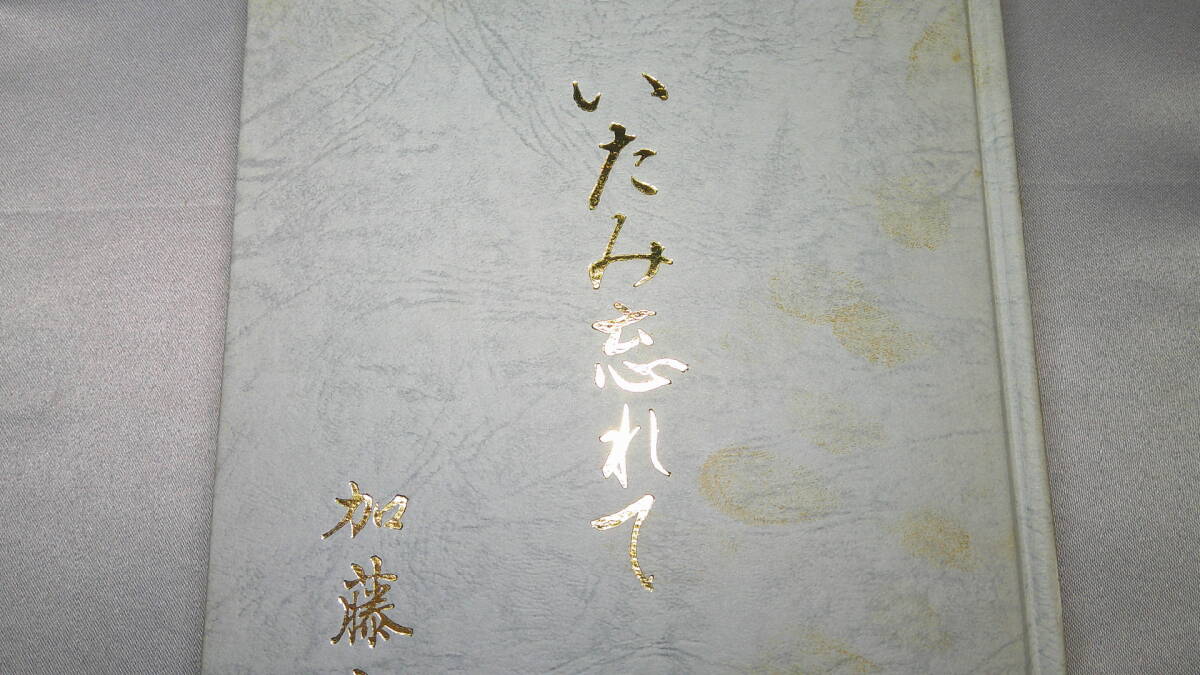 いたみ忘れて
加藤